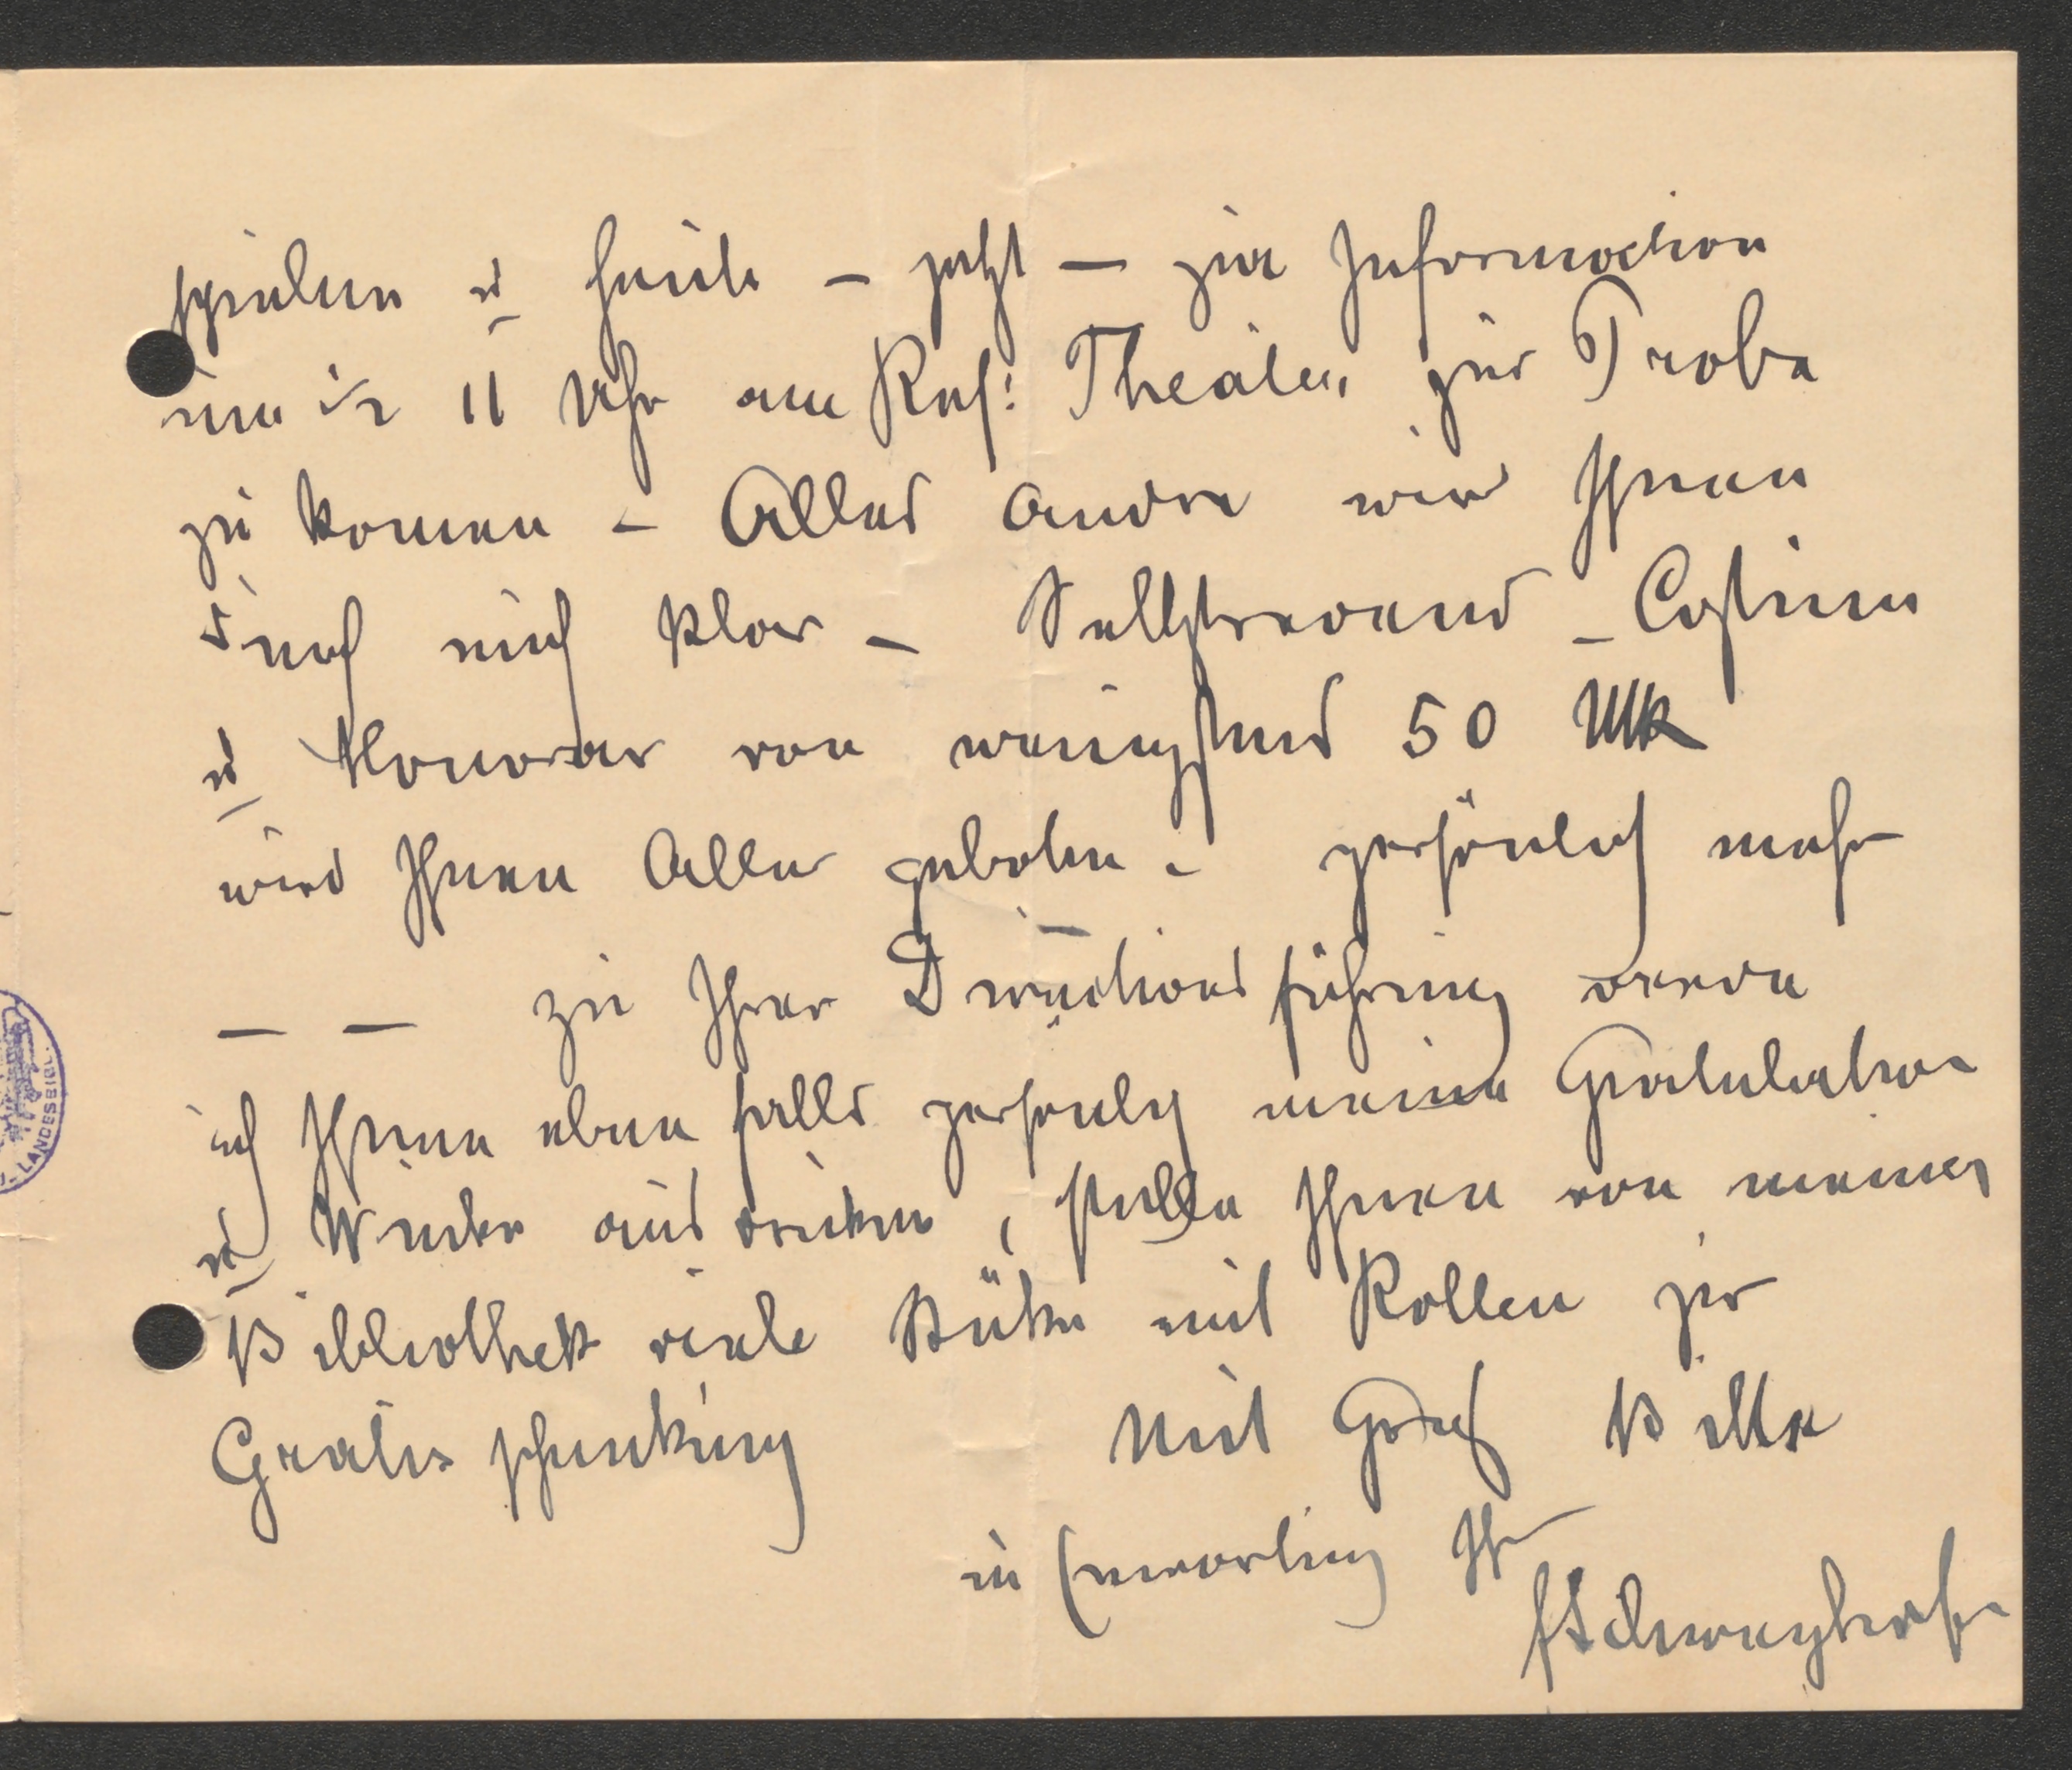 spielen u heute – jetzt – zur Information
um ½ 11 Uhr am Theater zur Probe
zu komen – Alles andre wird Ihnen
durch mich klar – Selbstredend – Costüme
u Honorar von wenigstens 50 Mk
wird Ihnen Allen geboten – persönlich mehr
– – zu Ihrer Direktionsführung werde
ich Ihnen eben falls persönlich meine Gratulation
u ausdrüken, stelle Ihnen von meiner
Bibliothek viele Stüke mit Rollen zur
Gratis Mit Gruß Bitte
in Erwartung Ihr